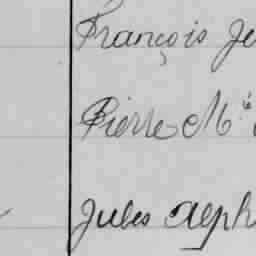 François Je
Pierre M.ie
Jules Alph